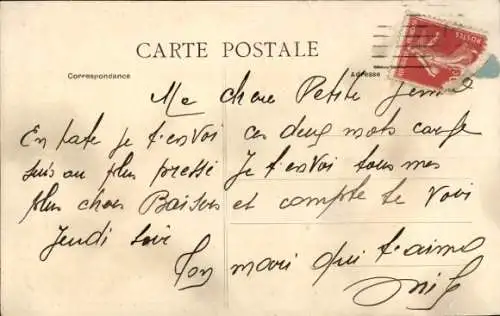 CARTE POSTALE
Correspondance
Adresse
POSTES
Ma chere Petite
En hate je t'envoi ces deux mots car je
suis au plus pressé Je t'envoi tous mes
plus chers Baisers et compte te voir
Jeudi soir
Ton mari qui t'aime